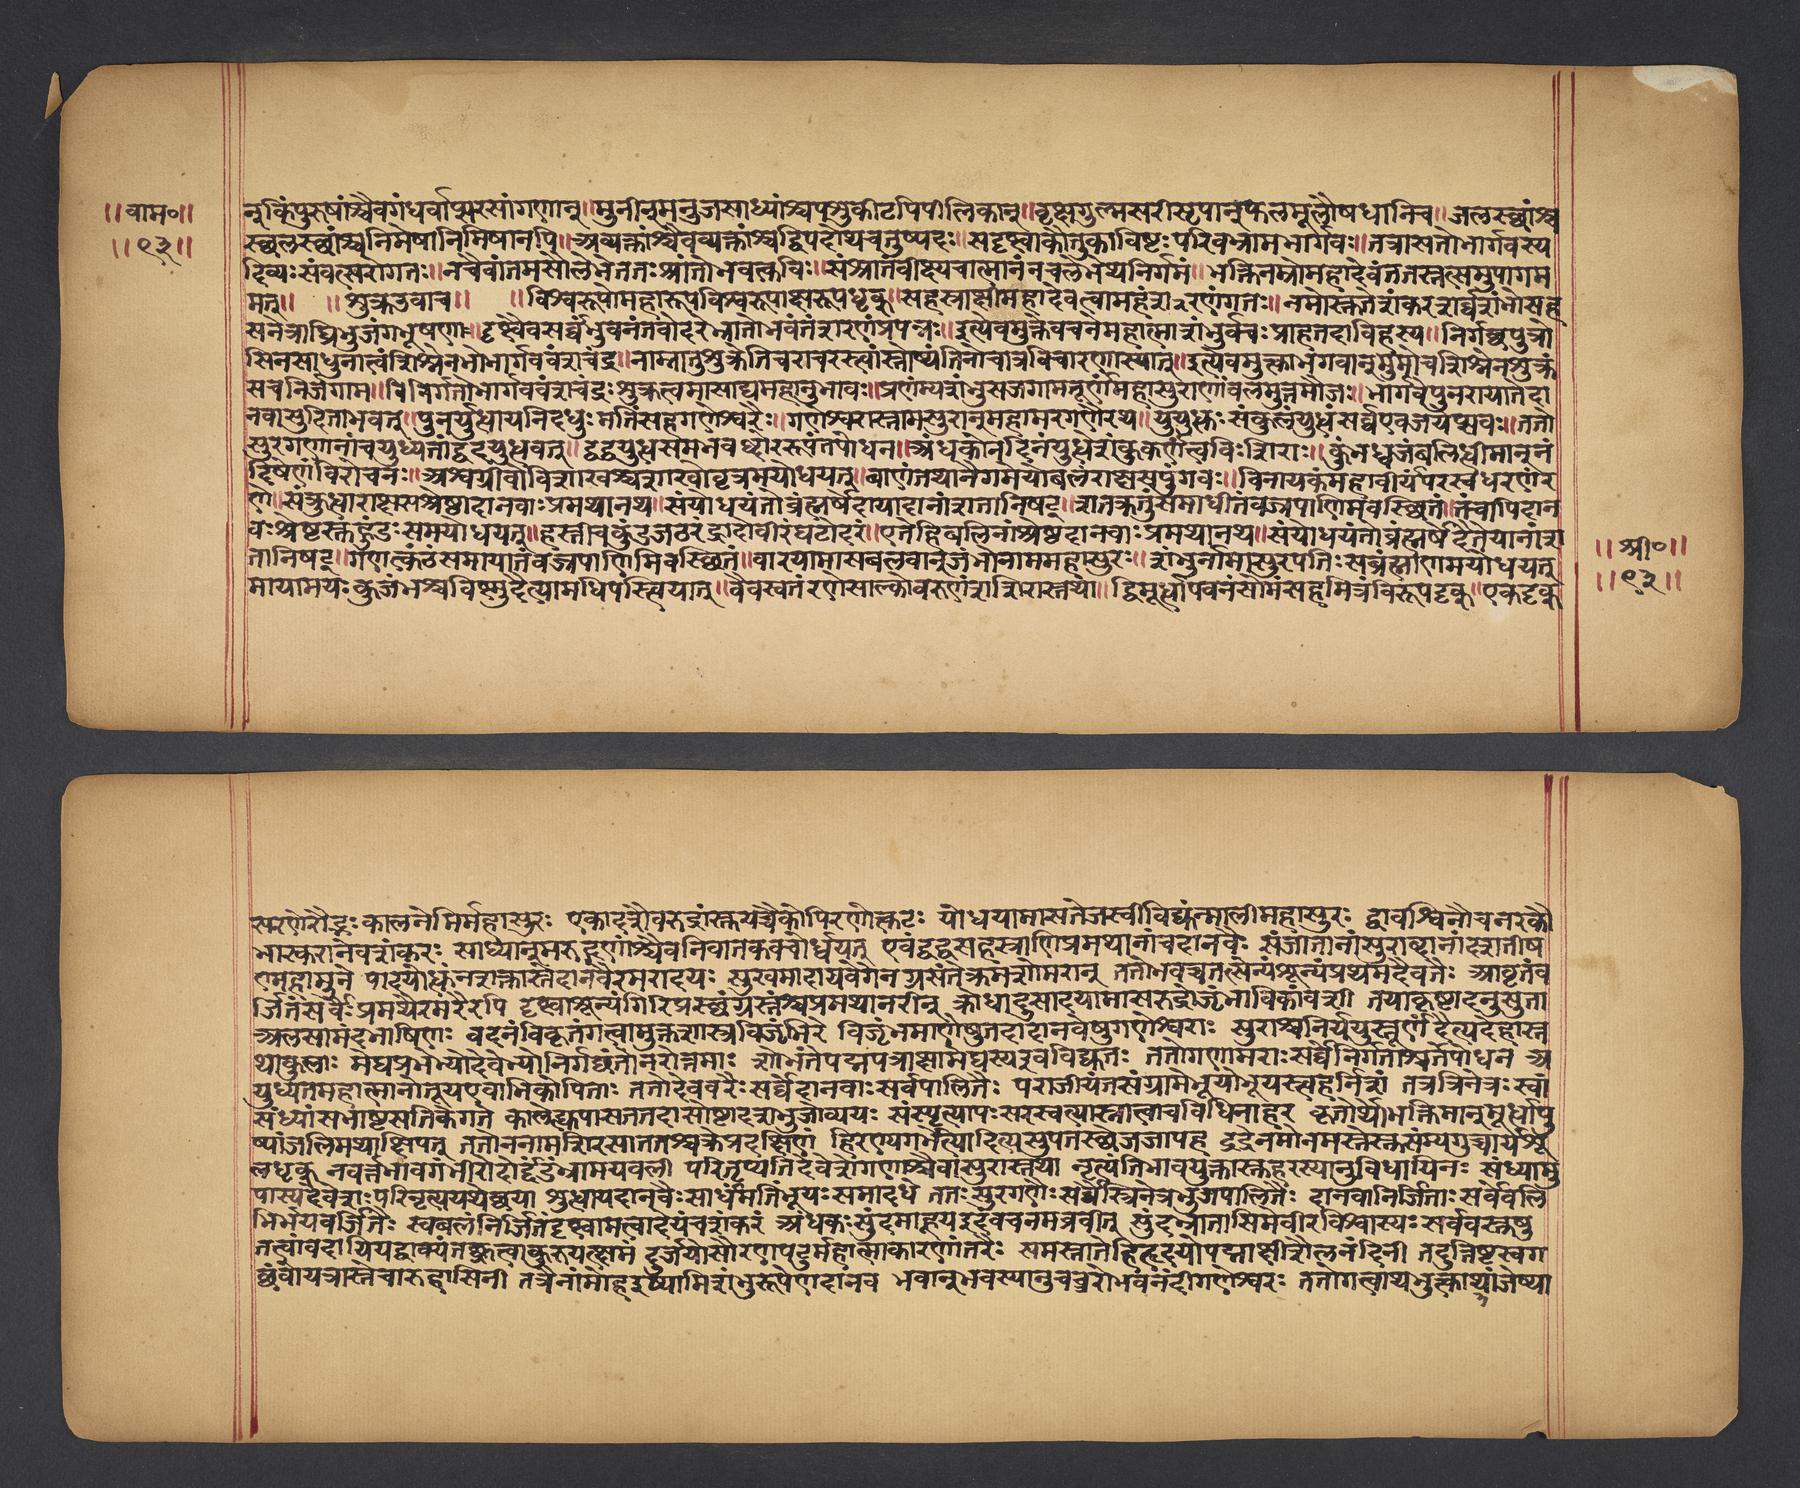 ॥वाम॰॥
॥९३॥
नूकिंपुरुषांश्चैवगंधर्वाप्सरसांगणान्॥मुनीन्मनुजसाध्यांश्चपशुकीटपिपीलिकान्॥वृक्षगुल्मसरीसृपान्फलमूलौषधानिच॥जलस्छांश्च
स्छलस्छांश्चनिमेषानिमिषानपि॥अव्यक्तांश्चैवव्यक्तांश्चद्विपदोथचतुष्पदः॥सदृष्ट्वाकौतुकाविष्टःपरिबभ्रामभार्गवः॥तत्रासतोभार्गवस्य
दिव्यःसंवत्सरोगतः॥नचैवांतमसौलेभेततःश्रांतोभवत्कविः॥संश्रांतंवीक्ष्यचात्मानंनचलेभेथनिर्गमं॥भक्तिनम्रोमहादेवंततस्तत्समुपागम
मत्॥ ॥शुक्रउवाच॥ ॥विश्वरूपमहारूपविश्वरूपाक्षरूपधृक्॥सहस्राक्षमहादेवत्वामहंशरणंगतः॥नमोस्तुतेशंकरशर्वशंभोसह
सनेत्रांघ्रिभुजंगभूषणा॥दृष्ट्वैवसर्वंभुवनंतवोदरेभ्रांतोभवंतंशरणंप्रपन्नः॥इत्येवमुक्तेवचनेमहात्माशंभुर्वचःप्राहतदाविहस्य॥निर्गछपुत्रो
सिनसाधुनात्वंशिश्नेनभोभार्गववंशचंद्र॥नाम्नातुशुक्रेतिचराचरस्त्वांस्तोष्यंतिनाचात्रविचारणास्यात्॥इत्येवमुक्त्वाभगवान्मुमोचशिश्नेनशुक्रं
सचनिर्जगाम॥विनिर्गतोभार्गववंशचंद्रःशुक्रत्वमासाद्यमहानुभावः॥प्रणम्यशंभुंसजगामतूर्णंमहासुराणांबलमुत्तमौजः॥भार्गवेपुनरायातेदा
नवामुदिताभवन्॥पुनर्युद्धायनिदधुःमतिंसहगणेश्वरैः॥गणेश्वरास्तामसुरान्महामरगणैरथ॥युयुधुःसंकुलंयुद्धंसर्वएवजयेप्सवः॥ततो
सुरगणानांचयुध्यतांद्वंद्वयुद्धवत्॥द्वंद्वयुद्धंसमभवद्घोररूपंतपोधन॥अंधकोनंदिनंयुद्धेशंकुकर्णंत्वयःशिराः॥कुंभध्वजंबलिर्धीमान्नं
दिषेणंविरोचनः॥अश्वग्रीवोविशाखंचशाखोवृत्रमयोधयत्॥बाणंतथानैगमेयोबलंराक्षसपुंगवः॥विनायकंमहावीर्यपरस्वधधरणोर
णे॥संक्रुद्धोराक्षसश्रेष्ठोदानवाःप्रमथानथ॥संयोधयंतोब्रह्मर्षेदायादानांशतानिषट्॥शतक्रतुंसमाधीतंवज्रपाणिमवस्छितं॥तंचापिदान
वःश्रेष्टस्तुहुंडःसमयोधयत्॥हस्तीचकुंडजठरंह्रादोवीरंघटोदरं॥एतेहिबलिनांश्रेष्ठदानवाःप्रमथानथ॥संयोधयंतोब्रह्मर्षेदैतेयानांश
तानिषट्॥गणोत्कंठंसमायातंवज्रपाणिमिवस्छितं॥वारयामासबलवान्जंभोनाममहासुरः॥शंभुर्नामासुरपतिःसब्रह्माणमयोधयत्
मायामयःकुजंभश्चविष्णुंदैत्यामधिपंस्त्रियात्॥वैवस्वतंरणेसाल्वोवरुणंत्रिशिरास्तथा॥द्विमूर्धापवनंसोमंसहमित्रंविरूपदृक्॥एकदृक्
॥श्री॰॥
॥९३॥
सरणेरौद्रःकालनेमिर्महासुरः एकादशैवरुद्रांस्तुयश्चैकोपिरणोत्कटः योधयामासतेजस्वीविद्युन्मालीमहासुरः द्वावश्विनौचनरको
भास्करानेवशंकरः साध्यान्मरुद्गणांश्चैवनिवातकवचोर्ध्वयत् एवंद्वंद्वसहस्राणिप्रमथानांचदानवैः संजातानांसुराब्दानांदशातीष
णमहामुने पादयोद्धुंनशक्तास्तेदानवैरमरादयः सुखमादायवेगेनग्रसंतेक्रमशोमरान् ततोभवच्चतत्सैन्यंशून्यंप्रथमदैवतैः आवृतंव
र्जितंसर्वैःप्रमथैरमरैरपि दृष्ट्वाशून्यंगिरिप्रस्छंग्रस्तांश्चप्रमथानरीन् क्रोधादुत्सादयामासरुद्रोजृंभाविकांवशी तयाकृष्टादनुसुता
अलसामंदभाषिणः वदनंविकृतंगत्वामुक्तशस्त्रविजृंभिरे विजृंभमाणेषुतदादानवेषुगणेश्वराः सुराश्चनिर्ययुस्तूर्णंदैत्यदेहास्त
थाकुलाः मेघप्रभेभ्योदैत्येभ्योनिर्गछंतोनरोत्तमाः शोभंतेपद्मपत्राक्षामेघस्यइवविद्युतः ततोगणामराःसर्वेनिर्गताश्चतपोधन अ
युध्यंतमहात्मानोतूयएवातिकोपिताः ततोदेववरैःसर्वेदानवाःसर्वपालितैः पराजीयंतसंग्रामेभूयोभूयस्त्वहर्निशं ततस्त्रिनेत्रःस्वां
संध्यांसभाष्टसतिकेगते कालेत्युपासततदासोष्टादशभुजोव्ययः संस्पृत्यापःसरस्वत्यास्नात्वाचविधिनाहर् कृतार्थोभक्तिमान्मूर्ध्नापु
ष्पांजलिमथाक्षिपत् ततोननामशिरसाततश्चक्रेप्रदक्षिणं हिरण्यगर्भेत्यादित्यमुपतस्छेजजापह द्रद्रेनमोनमस्तेस्तुसम्यगुच्चार्यशू
लधृक् ननर्त्तभावगंभीरंदोर्द्दंडंभ्रामयवली परिनृत्यतिदेवेशेगणाश्चैवासुरास्तथा नृत्यंतिभावयुक्तास्तेहरस्यानुविधायिनः संध्यामु
पास्यदेवेशःपरिनृत्ययथेछया युद्धायदानवैःसार्धंमतिंभूयःसमादधे ततःसुरगणैःसर्वैस्त्रिनेत्रभुजपालितैः दानवानिर्जिताःसर्वेबलि
भिर्भयवर्जितैः स्वबलंनिर्जितंदृष्ट्वामत्वाजेयंचशंकरं अंधकःसुंदमाहूयइदंवचनमब्रवीत् सुंदभ्रातासिमेवीरविश्वास्यःसर्ववस्तुषु
तत्त्वांवदाम्यियद्वाक्यंतच्छ्रुत्वाकुरुयत्क्षमं दुर्जयोसौरणापटुर्महात्माकारणांतरैः समस्तातेहिहृदयेपद्माक्षीशैलनंदिनी तदुत्तिष्टस्वग
छंवोयत्रास्तेचारुहासिनी तत्रैनांमोहइष्यामिशंभुरूपेणदानव भवान्भवस्यानुचरोभवनंदीगणेश्वरः ततोगत्वाथभुत्काथांजेष्या